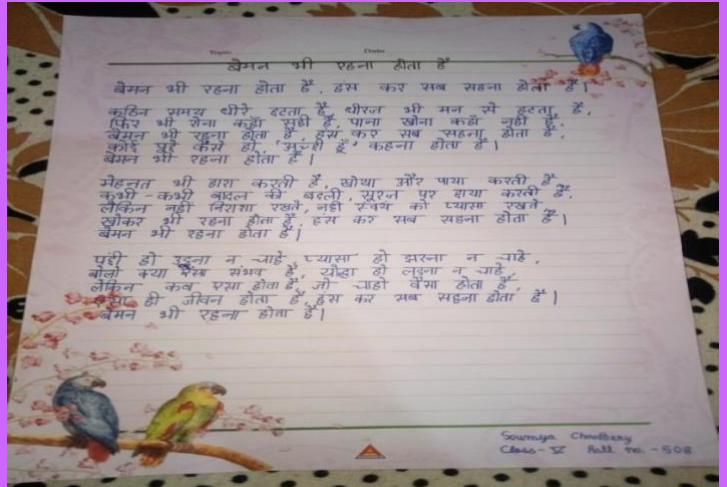 Topic Date
बेमन भी रहना होता है
बेमन भी रहना होता है, हंस कर सब सहना होता है।
कठिन समय धीरे हटता है, धीरज भी मन से हटता है,
फिर भी रोना कहाँ सही है, पाना खोना कहाँ नहीं है,
बेमन भी रहना होता है, हंस कर सब सहना होता है,
कोई पूछे कैसे हो, 'अच्छी हूँ' कहना होता है।
बेमन भी रहना होता है।
मेहनत भी हारा करती है, खोया और पाया करती है
कभी-कभी बादल की बदली, सूरज पर छाया करती है,
लेकिन नहीं निराशा रखते, नहीं स्वयं को प्यासा रखते,
खोकर भी रहना होता है, हंस कर सब सहना होता है।
बेमन भी रहना होता है।
पंछी हो उड़ना न चाहे, प्यासा हो झरना न चाहे,
बोलो क्या ऐसा संभव है, योद्धा हो लड़ना न चाहे,
लेकिन कब ऐसा होता है, जो चाहो वैसा होता है,
ऐसा ही जीवन होता है, हंस कर सब सहना होता है।
बेमन भी रहना होता है।
Soumya Choudhary
Class - V Roll no. - 508